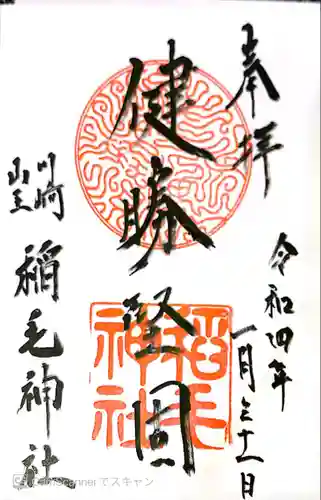 奉拝
令和四年
一月三十一日
健勝堅固
川崎
山王
稲毛神社
稲毛
神社
CamScanner でスキャン